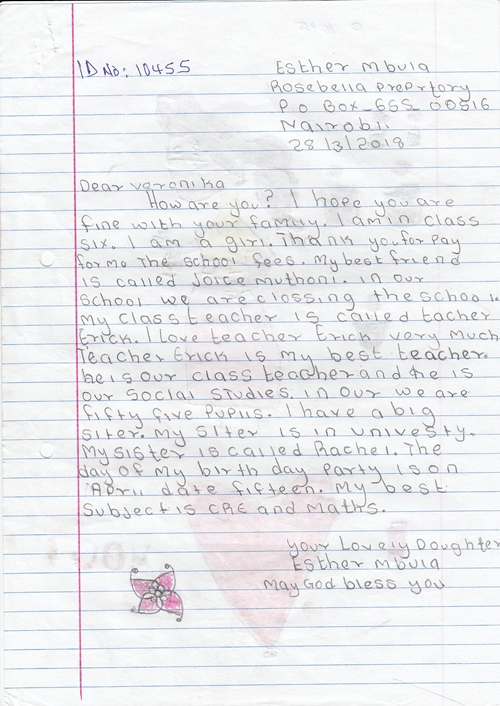 ID No: 10455
Esther Mbula
Rosebella Preprtory
P O Box_655_00516
Nairobi.
28/3/2018
Dear veronika
How are you? I hope you are
fine with your family. I am in class
six. I am a girl. Thank you for pay
for me the school fees. My best friend
is called Joice muthoni. In our
school we are clossing the school.
My class teacher is called tacher
Erick. I love teacher Erick very much
Teacher Erick is my best teacher.
he is our class teacher and he is
our social studies. in our we are
fifty five pupils. I have a big
siter. My siter is in univesty.
My sister is called Rachel. The
day of my birth day party is on
April date fifteen. My best
Subject is CRE and Maths.
your Lovely Doughter
Esther Mbula
May God bless you